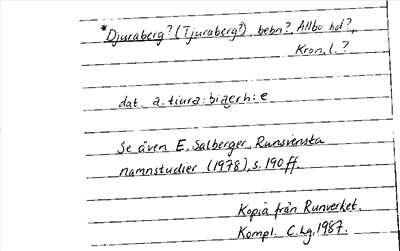 *Djuraberg? (Tjuraberg?), bebn?, Allbo hd?,
Kron. l. ?
dat. a:tiura:biaerh:e
Se även E. Salberger, Runsvenska
namnstudier (1978), s. 190 ff.
Kopia från Runverket.
Kompl. C.Lg. 1987.